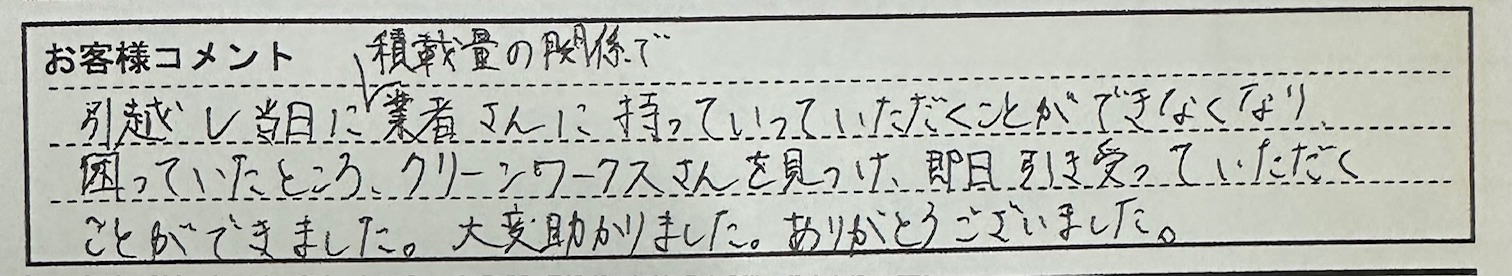 お客様コメント 積載量の関係で
引越し当日に業者さんに持っていっていただくことができなくなり、
困っていたところ、クリーンワークスさんを見つけ、即日引き受っていただく
ことができました。大変助かりました。ありがとうございました。